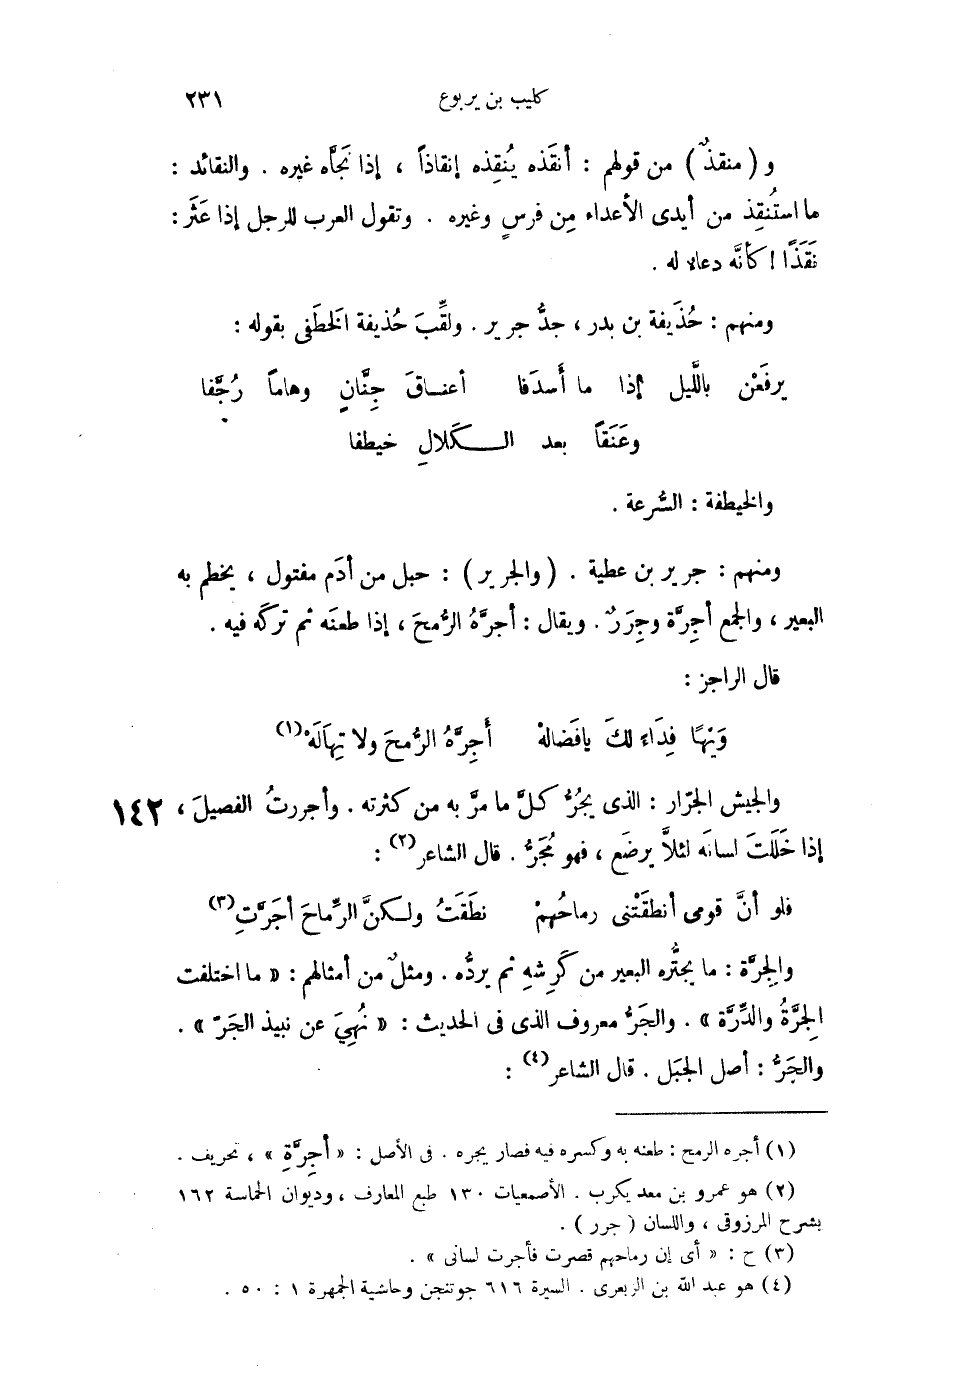 كليب بن يربوع ٢٣١
و (منقذٌ) من قولهم : أنقَذه يُنقِذه إنقاذاً ، إذا نَجَّاه غيره . والنقائذ :
ما استُنقِذ من أيدى الأعداء مِن فرسٍ وغيره . وتقول العرب للرجل إذا عَثَر :
نَقَذًا ! كأنَّه دعاء له .
ومنهم : حُذَيفة بن بدر ، جدُّ جرير . ولقِّبَ حُذيفة الخطَفى بقوله :
يرفَعْن باللَّيل إذا ما أَسدَفا أعنـاقَ جِنَّانٍ وهاماً رُجَّفا
وعَنَقاً بعد الـكَلالِ خيطفا
والخيطفة : السُّرعة .
ومنهم : جرير بن عطية . (والجرير) : حبل من أدَم مفتول ، يخطم به
البعير ، والجمع أجِرَّة وجِرَرٌ . ويقال : أجرَّهُ الرُّمحَ ، إذا طعنَه ثم تركَه فيه .
قال الراجز :
وَيْهًا فِدَاء لكَ يافَضالهْ أَجِرَّهُ الرُّمحَ ولا تِهَالَهْ(١)
والجيش الجرّار : الذى يجُرُّ كلَّ ما مرَّ به من كثرته . وأجررتُ الفصيلَ ، ١٤٢
إذا خَلَلتَ لسانَه لئلاَّ يرضَع ، فهو مُجَرٌّ . قال الشاعر(٢) :
فلو أنَّ قومى أنطقَتْنى رماحُهمْ نطَقتُ ولـكنَّ الرِّماحَ أجَرَّتِ(٣)
والجِرَّة : ما يجترُّه البعير من كَرِشهِ ثم يردُّه . ومثلٌ من أمثالهم : « ما اختلفت
الجِرَّةُ والدِّرَّة » . والجَرُّ معروف الذى فى الحديث : « نُهِيَ عن نبيذ الجَرّ » .
والجَرُّ : أصل الجبَل . قال الشاعر(٤) :
(١) أجره الرمح : طعنه به وكسره فيه فصار يجره . فى الأصل : « أجِرَّةِ » ، تحريف .
(٢) هو عمرو بن معد يكرب . الأصمعيات ١٣٠ طبع المعارف ، وديوان الحماسة ١٦٢
بشرح المرزوقى ، واللسان ( جرر ) .
(٣) ح : « أى إن رماحهم قصرت فأجرت لسانى » .
(٤) هو عبد الله بن الزبعرى . السيرة ٦١٦ جوتنجن وحاشية الجمهرة ١ : ٥٠ .